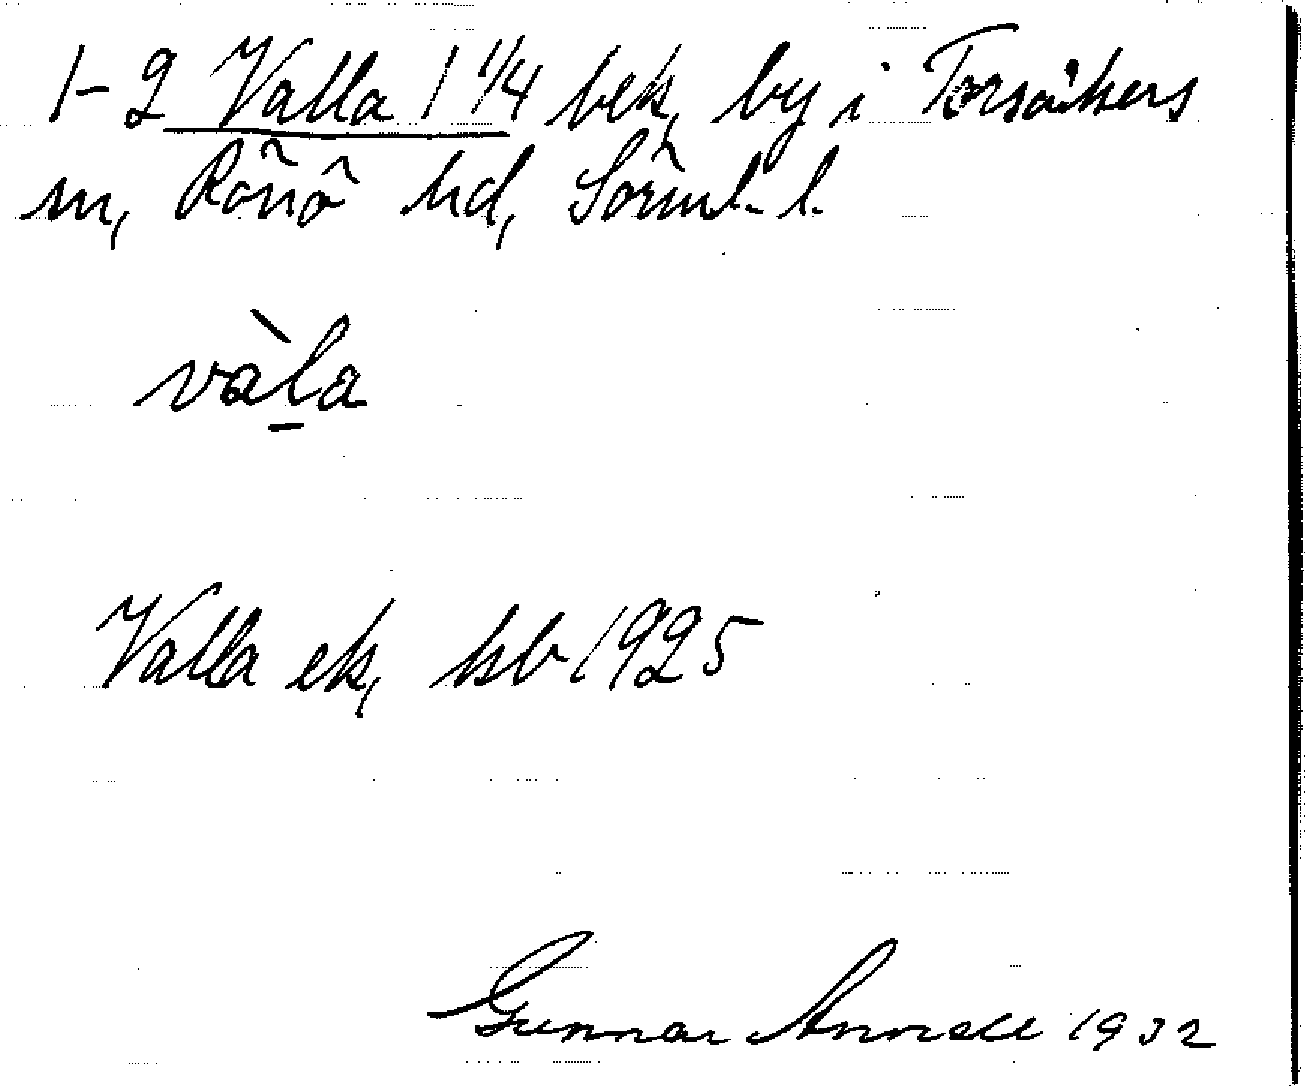 1-2 Valla 1 1/4 bek, by i Torsåkers
sn, Rönö hd, Sörml. l.
vàl̲a
Valla ek, kb 1925
Gunnar Annell 1932